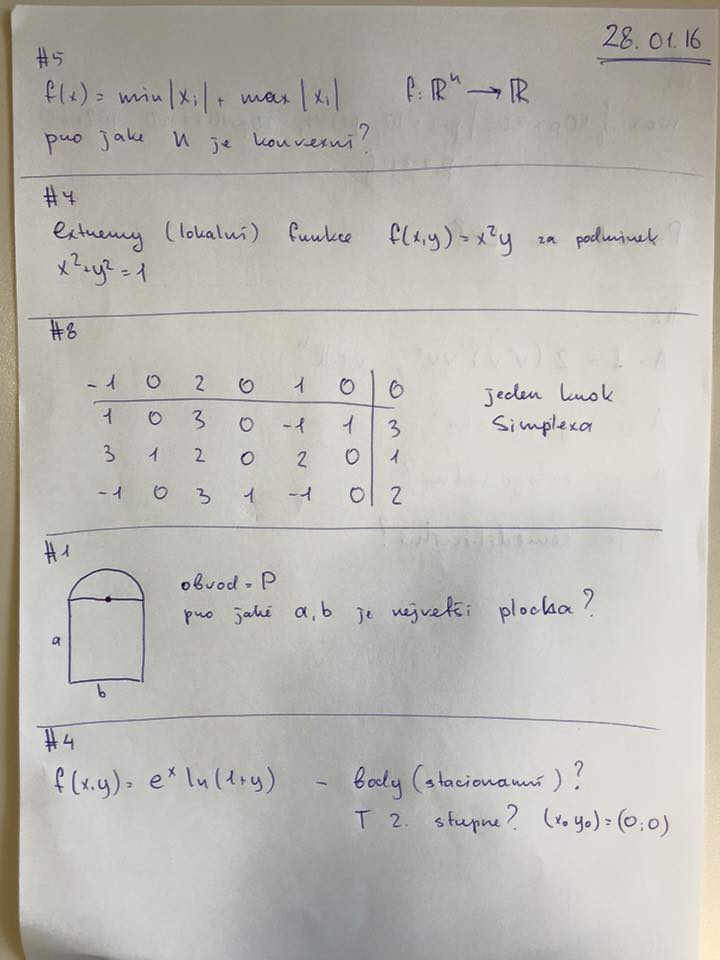 28.01.16
#5
f(x) = min|xi| + max|xi| f: ℝⁿ → ℝ
pro jake n je konvexní?
#7
extremy (lokalní) funkce f(x,y) = x²y za podmínek
x²+y²=1
#8
-1 0 2 0 1 0 | 0
1 0 3 0 -1 1 | 3
3 1 2 0 2 0 | 1
-1 0 3 1 -1 0 | 2
jeden krok
Simplexa
#1
obvod = P
pro jaké a,b je nejvetší plocha?
a
b
#4
f(x,y) = eˣ ln(1+y) – body (stacionarní)?
T 2. stupne? (x₀ y₀)=(0;0)